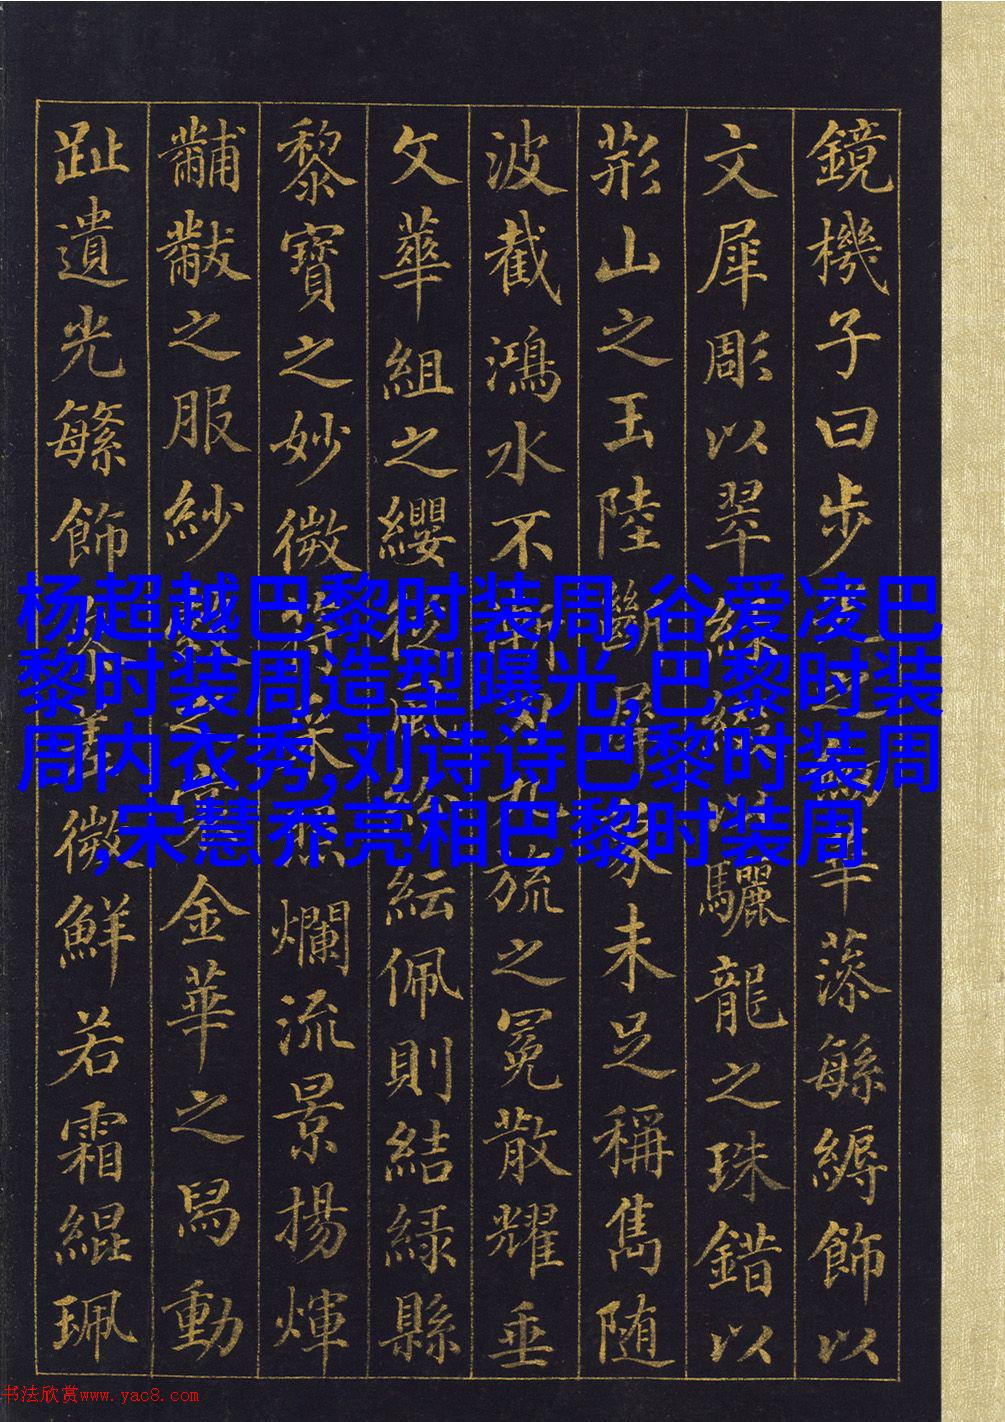 鏡機子曰步光之劒華藻繁縟飾以
文犀彫以翠綠綴以驪龍之珠錯以
荊山之玉陸斷犀象未足稱雋随
波截鴻水不漸刃九旒之冕散耀垂
文華組之纓從風紛紜佩則結緑縣
黎寶之妙微符采照爛流景揚煇
黼黻之服紗縠之裳金華之舄動
趾遺光繁飾參差微鮮若霜緄珮
杨超越巴黎时装周,谷爱凌巴
黎时装周造型曝光,巴黎时装
周内衣秀,刘诗诗巴黎时装周
,宋慧乔亮相巴黎时装周
书法欣赏www.yac8.com